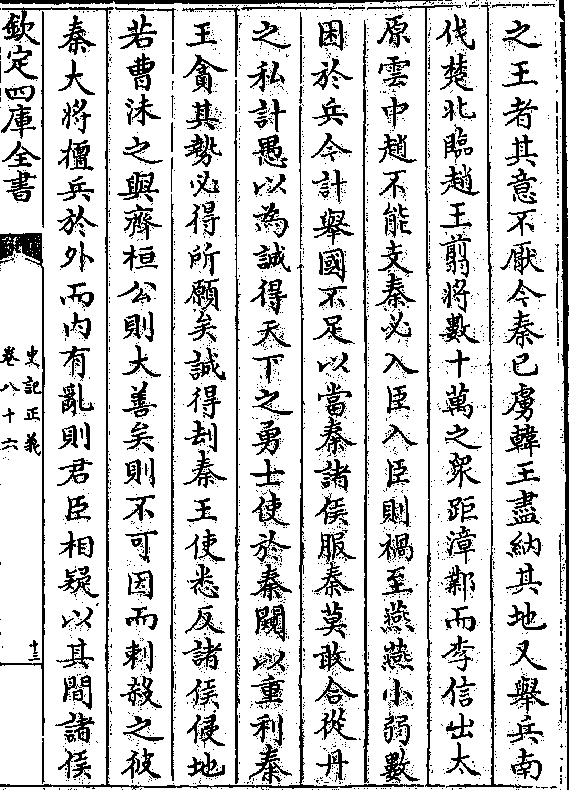 之王者其意不厭今秦已虜韓王盡納其地又舉兵南
伐楚北臨趙王翦將數十萬之衆距漳鄴而李信出太
原雲中趙不能支秦必入臣入臣則禍至燕燕小弱數
困於兵今計舉國不足以當秦諸侯服秦莫敢合從丹
之私計愚以為誠得天下之勇士使於秦闚以重利秦
王貪其勢必得所願矣誠得刧秦王使悉反諸侯侵地
若曹沬之與齊桓公則大善矣則不可因而刺殺之彼
秦大將擅兵於外而内有亂則君臣相疑以其間諸侯
欽定四庫全書
史記正義
卷八十六
十三